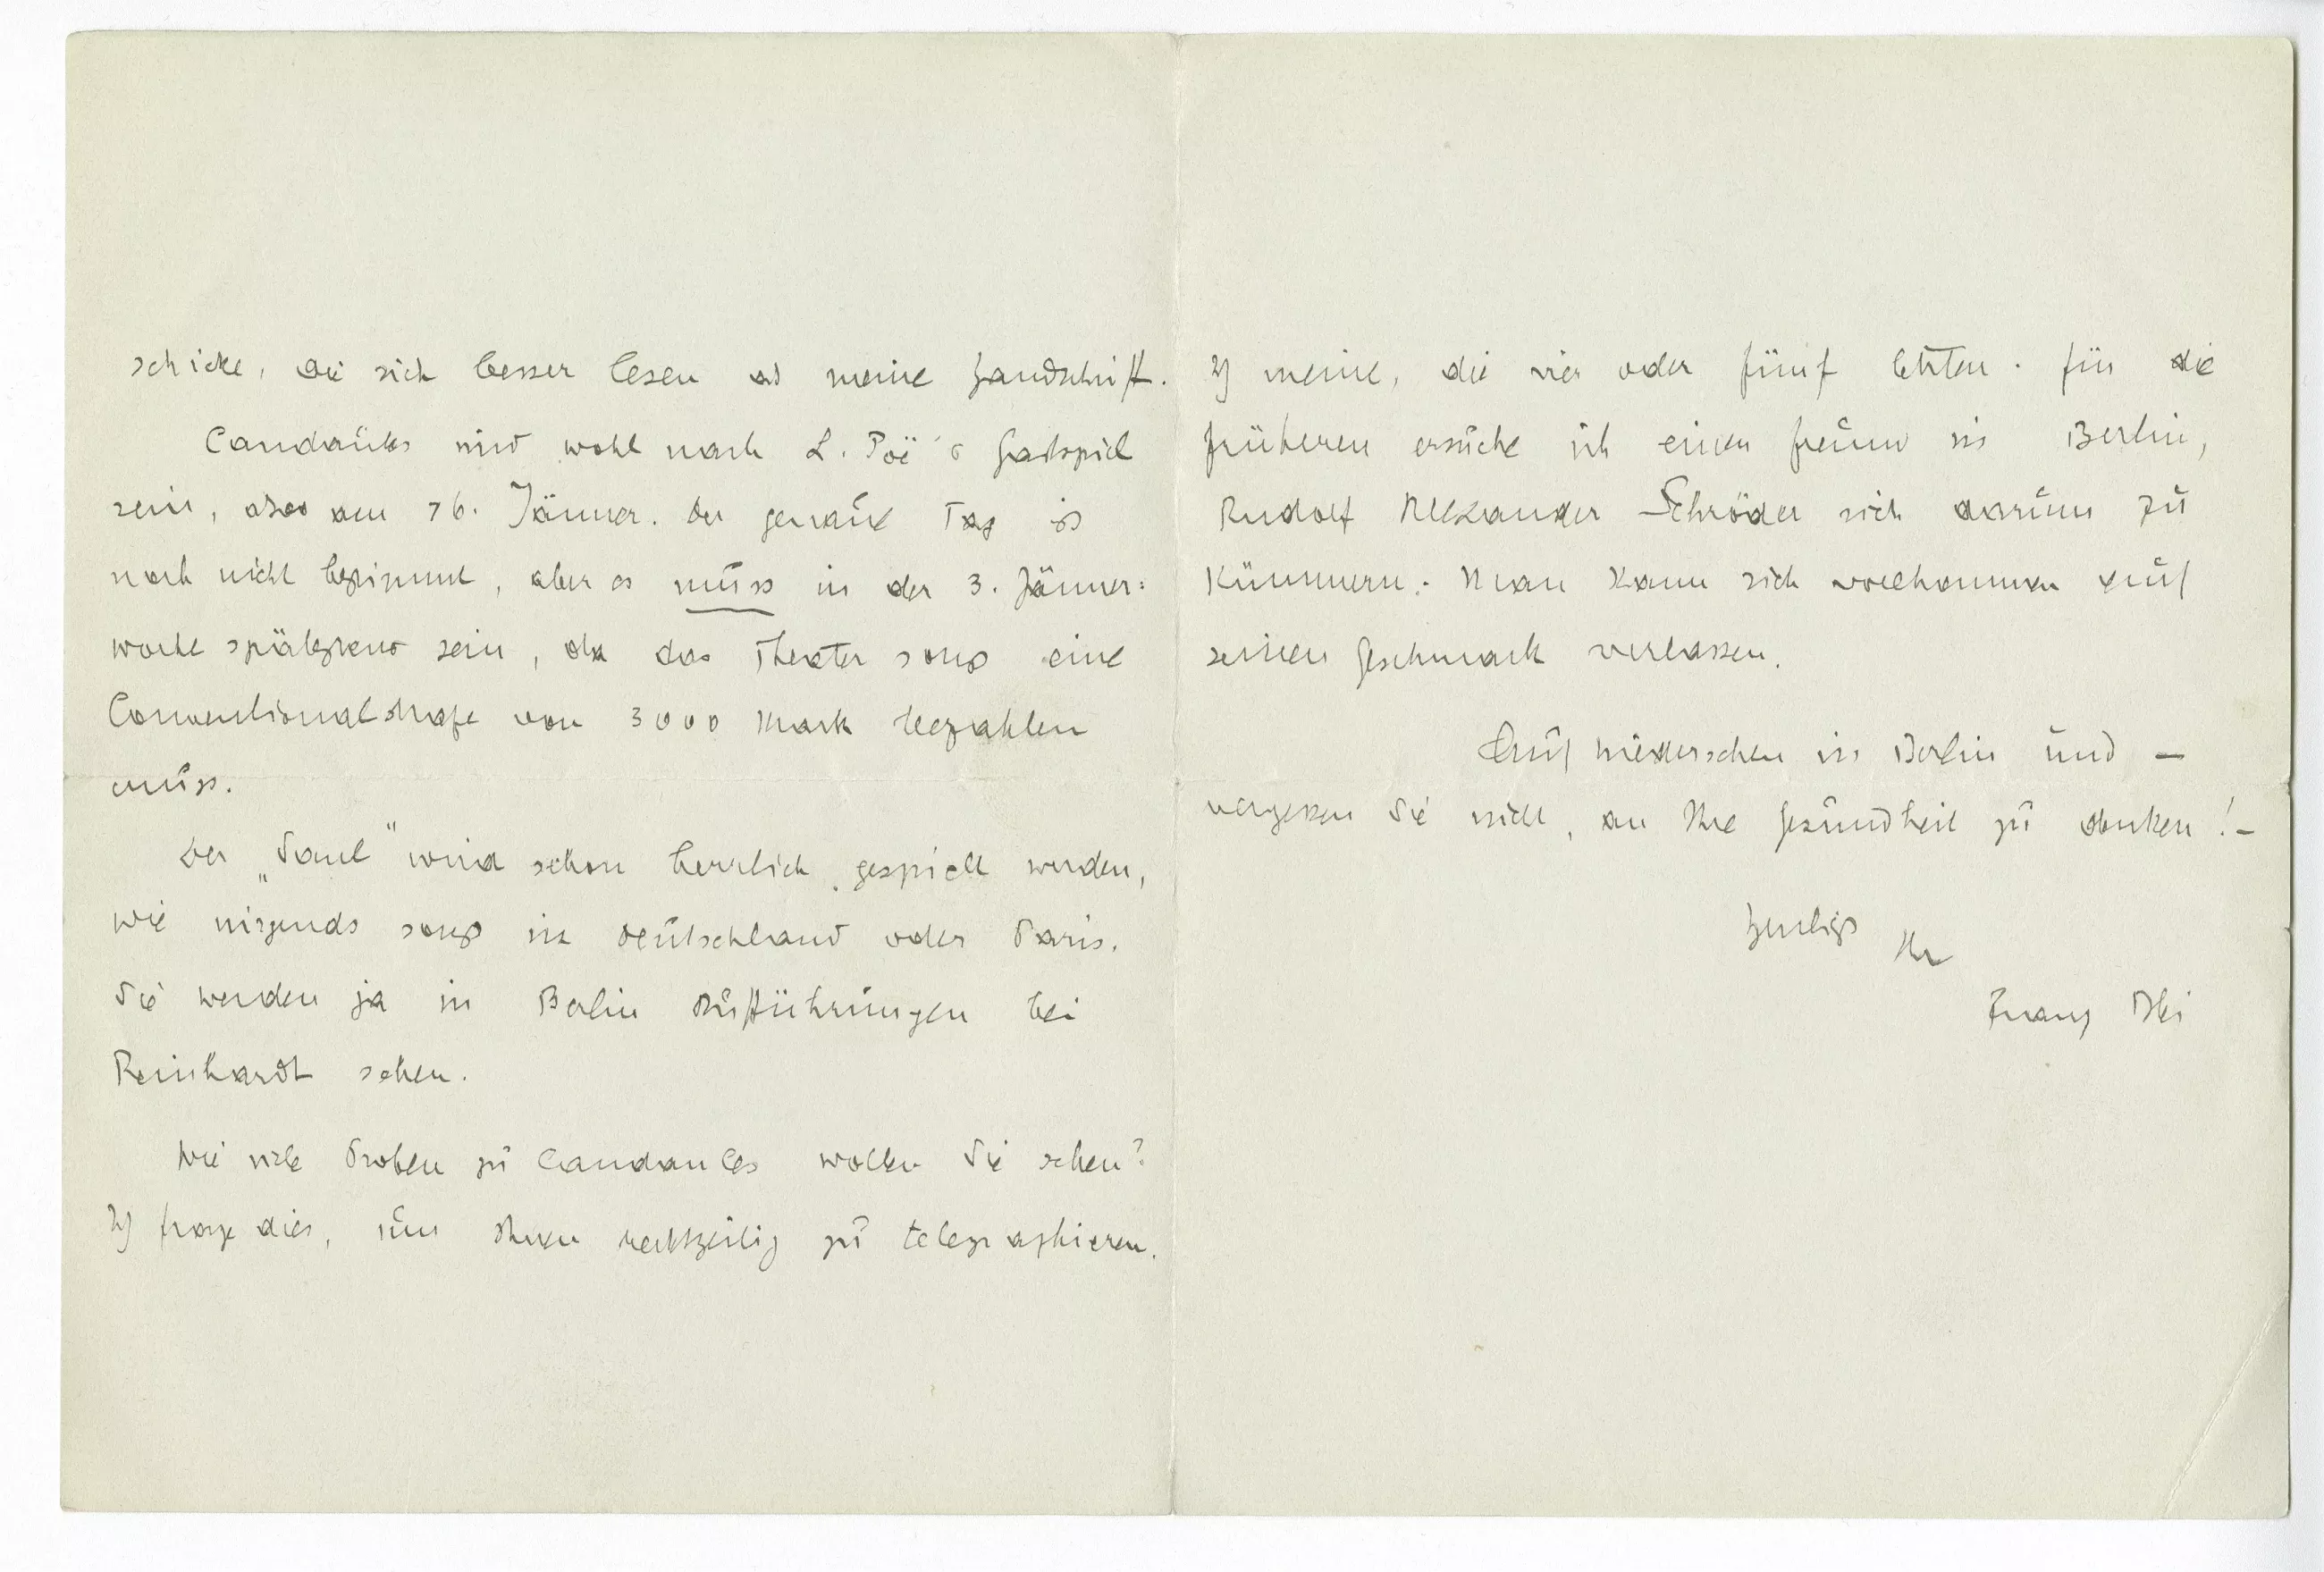 schicke, die sich besser lesen als meine Handschrift.
Candaules wird wohl nach L. Poë's Gastspiel
sein, also am 16. Jänner. Der genaue Tag ist
noch nicht bestimmt, aber es muss in der 3. Jänner-
woche spätestens sein, da das Theater sonst eine
Conventionalstrafe von 3000 Mark bezahlen
muss.
Der „Saul" wird schon herrlich gespielt werden,
wie nirgends sonst in Deutschland oder Paris.
Sie werden ja in Berlin Aufführungen bei
Reinhardt sehen.
Wie viele Proben zu Candaules wollen Sie sehen?
Ich frage dies, um Ihnen rechtzeitig zu telegraphieren.
Ich meine, die vier oder fünf letzten. für die
früheren ersuche ich einen Freund in Berlin,
Rudolf Alexander Schröder sich darum zu
kümmern. Man kann sich vollkommen auf
seinen Geschmack verlassen.
Auf Wiedersehen in Berlin und —
vergessen Sie nicht, an Ihre Gesundheit zu denken! –
herzlichst Ihr
Franz Blei